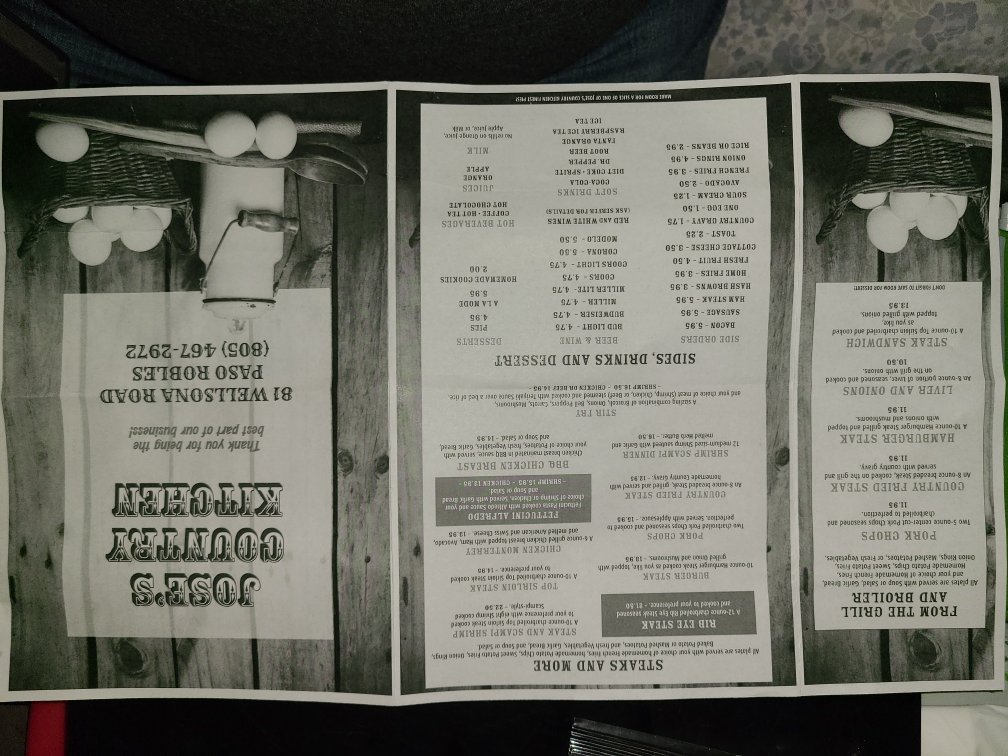 FROM THE GRILL
AND BROILER
All plates are served with Soup or Salad, Garlic Bread,
and your choice of Homemade French Fries,
Homemade Potato Chips, Sweet Potato Fries,
Onion Rings, Mashed Potatoes, or Fresh Vegetables.
PORK CHOPS
Two 7-ounce center-cut Pork Chops seasoned and
charbroiled to perfection.
11.95
COUNTRY FRIED STEAK
An 8-ounce breaded Steak, cooked on the grill and
served with country gravy.
11.95
HAMBURGER STEAK
A 10-ounce Hamburger Steak grilled and topped
with onions and mushrooms.
11.95
LIVER AND ONIONS
An 8-ounce portion of Liver, seasoned and cooked
on the grill with onions.
10.50
STEAK SANDWICH
A 10 ounce Top Sirloin charbroiled and cooked
as you like,
topped with grilled onions.
13.95
DON'T FORGET TO SAVE ROOM FOR DESSERT!
STEAKS AND MORE
All plates are served with your choice of homemade French Fries, homemade Potato Chips, Sweet Potato Fries, Onion Rings,
Baked Potato or Mashed Potatoes, and Fresh Vegetables, Garlic Bread, and Soup or Salad.
RIB EYE STEAK
A 12-ounce charbroiled Rib Eye Steak seasoned
and cooked to your preference. - 21.50
BURGER STEAK
10-ounce Hamburger Steak cooked as you like, topped with
grilled Onion and Mushrooms. - 15.95
PORK CHOPS
Two charbroiled Pork Chops seasoned and cooked to
perfection. Served with Applesauce. - 15.95
COUNTRY FRIED STEAK
An 8-ounce breaded Steak, grilled and served with
homemade Country Gravy. - 12.95
SHRIMP SCAMPI DINNER
12 medium-sized Shrimp sauteed with Garlic and
melted Herb Butter. - 16.50
STEAK AND SCAMPI SHRIMP
A 10-ounce charbroiled Top Sirloin Steak cooked
to your preference with eight Shrimp cooked
Scampi-style. - 22.50
TOP SIRLOIN STEAK
A 10-ounce charbroiled Top Sirloin Steak cooked
to your preference. - 14.95
CHICKEN MONTERREY
A 6-ounce grilled Chicken breast topped with Ham, Avocado,
and melted American and Swiss Cheese - 13.95
FETTUCINI ALFREDO
Fettucini Pasta cooked with Alfredo Sauce and your
choice of Shrimp or Chicken, Served with Garlic Bread
and Soup or Salad
- SHRIMP 15.95 - CHICKEN 13.95 -
BBQ CHICKEN BREAST
Chicken breast marinated in BBQ sauce, served with
your choice of Potatoes, fresh Vegetables, Garlic Bread,
and Soup or Salad. - 14.95
STIR FRY
A sizzling combination of Broccoli, Onions, Bell Peppers, Carrots, Mushrooms,
and your choice of meat (Shrimp, Chicken, or Beef) steamed and cooked with Teriyaki Sauce over a bed of rice.
- SHRIMP 16.50 - CHICKEN OR BEEF 14.95 -
SIDES, DRINKS AND DESSERT
SIDE ORDERS
BACON - 5.95
SAUSAGE - 5.95
HAM STEAK - 5.95
HASH BROWNS - 3.95
HOME FRIES - 3.95
FRESH FRUIT - 4.50
COTTAGE CHEESE - 3.50
TOAST - 2.25
COUNTRY GRAVY - 1.75
ONE EGG - 1.50
SOUR CREAM - 1.25
AVOCADO - 2.50
FRENCH FRIES - 3.95
ONION RINGS - 4.95
RICE OR BEANS - 2.95
BEER & WINE
BUD LIGHT - 4.75
BUDWEISER - 4.75
MILLER - 4.75
MILLER LITE - 4.75
COORS - 4.75
COORS LIGHT - 4.75
CORONA - 5.50
MODELO - 5.50
RED AND WHITE WINES
(ASK SERVER FOR DETAILS)
SOFT DRINKS
COCA-COLA
DIET COKE • SPRITE
DR. PEPPER
ROOT BEER
FANTA ORANGE
RASPBERRY ICE TEA
ICE TEA
DESSERTS
PIES
4.95
A LA MODE
5.95
HOMEMADE COOKIES
2.00
HOT BEVERAGES
COFFEE • HOT TEA
HOT CHOCOLATE
JUICES
ORANGE
APPLE
MILK
No refills on Orange Juice,
Apple Juice, or Milk
MAKE ROOM FOR A SLICE OF ONE OF JOSE'S COUNTRY KITCHEN FINEST PIES!
JOSE'S
COUNTRY
KITCHEN
Thank you for being the
best part of our business!
81 WELLSONA ROAD
PASO ROBLES
(805) 467-2972